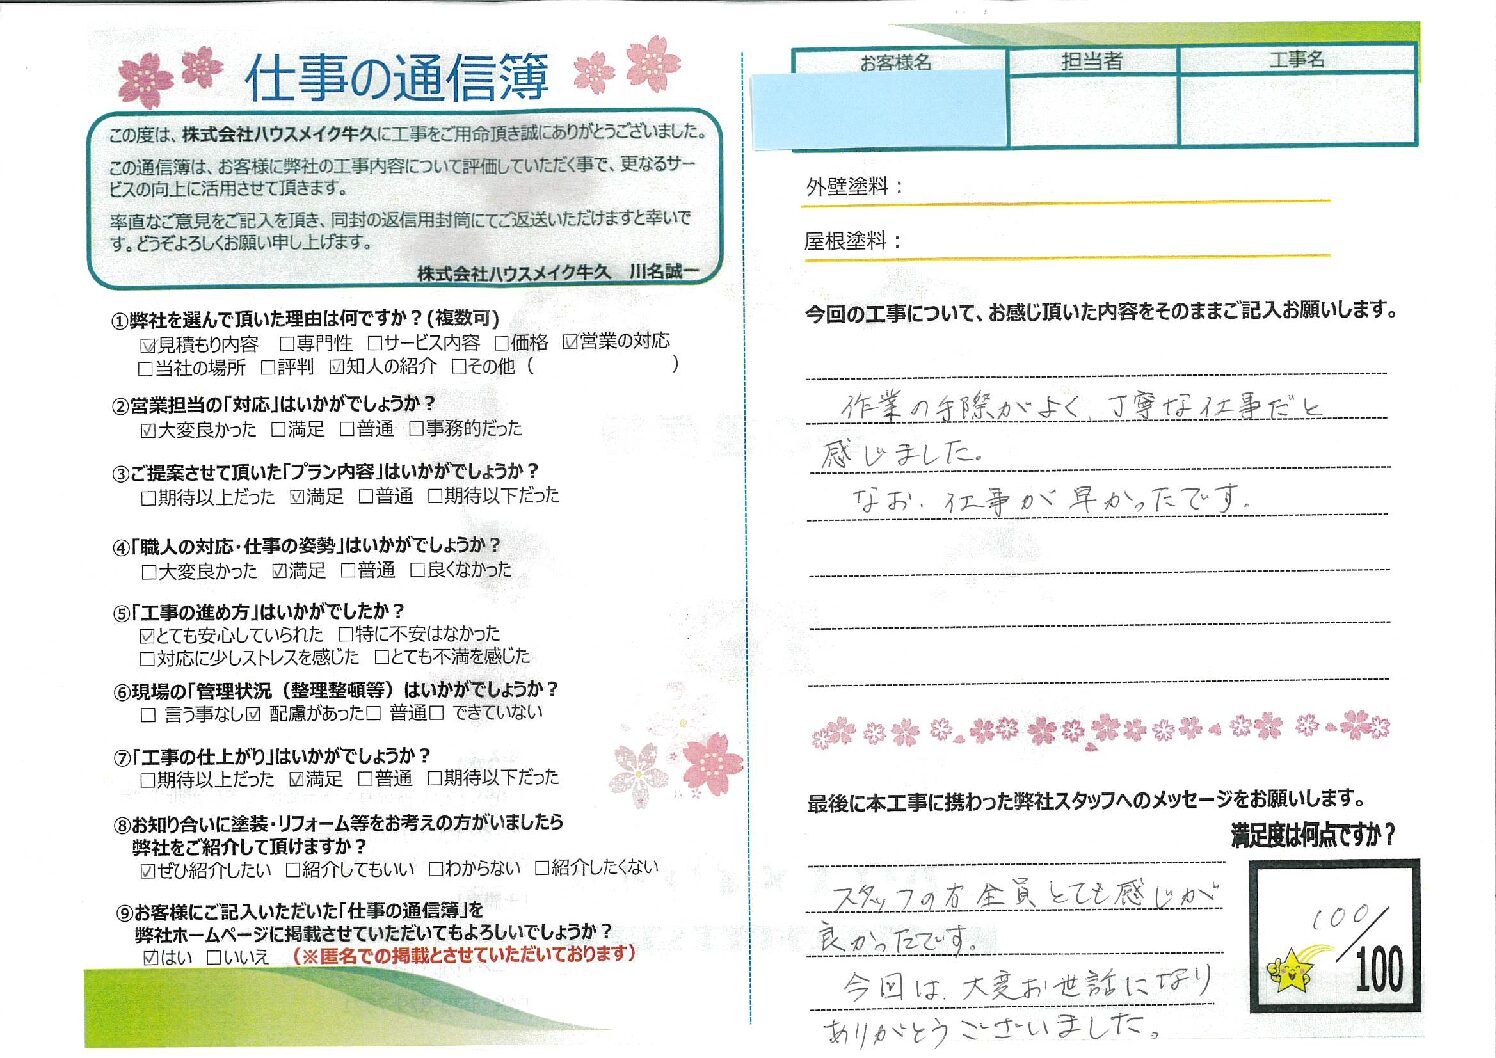 仕事の通信簿
この度は、株式会社ハウスメイク牛久に工事をご用命頂き誠にありがとうございました。
この通信簿は、お客様に弊社の工事内容について評価していただく事で、更なるサー
ビスの向上に活用させて頂きます。
率直なご意見をご記入を頂き、同封の返信用封筒にてご返送いただけますと幸いで
す。どうぞよろしくお願い申し上げます。
株式会社ハウスメイク牛久　川名誠一
①弊社を選んで頂いた理由は何ですか？(複数可)
☑見積もり内容　□専門性　□サービス内容　□価格　☑営業の対応
□当社の場所　□評判　☑知人の紹介　□その他（　　　　　　　）
②営業担当の「対応」はいかがでしょうか？
☑大変良かった　□満足　□普通　□事務的だった
③ご提案させて頂いた「プラン内容」はいかがでしょうか？
□期待以上だった　☑満足　□普通　□期待以下だった
④「職人の対応・仕事の姿勢」はいかがでしょうか？
□大変良かった　☑満足　□普通　□良くなかった
⑤「工事の進め方」はいかがでしたか？
☑とても安心していられた　□特に不安はなかった
□対応に少しストレスを感じた　□とても不満を感じた
⑥現場の「管理状況（整理整頓等）はいかがでしょうか？
□ 言う事なし☑ 配慮があった□ 普通□ できていない
⑦「工事の仕上がり」はいかがでしょうか？
□期待以上だった　☑満足　□普通　□期待以下だった
⑧お知り合いに塗装・リフォーム等をお考えの方がいましたら
弊社をご紹介して頂けますか？
☑ぜひ紹介したい　□紹介してもいい　□わからない　□紹介したくない
⑨お客様にご記入いただいた「仕事の通信簿」を
弊社ホームページに掲載させていただいてもよろしいでしょうか？
☑はい　□いいえ　（※匿名での掲載とさせていただいております）
お客様名　担当者　工事名
外壁塗料：
屋根塗料：
今回の工事について、お感じ頂いた内容をそのままご記入お願いします。
作業の手際がよく、丁寧な仕事だと
感じました。
なお、仕事が早かったです。
最後に本工事に携わった弊社スタッフへのメッセージをお願いします。
満足度は何点ですか？
スタッフの方全員とても感じが
良かったです。
今回は、大変お世話になり
ありがとうございました。
100/100